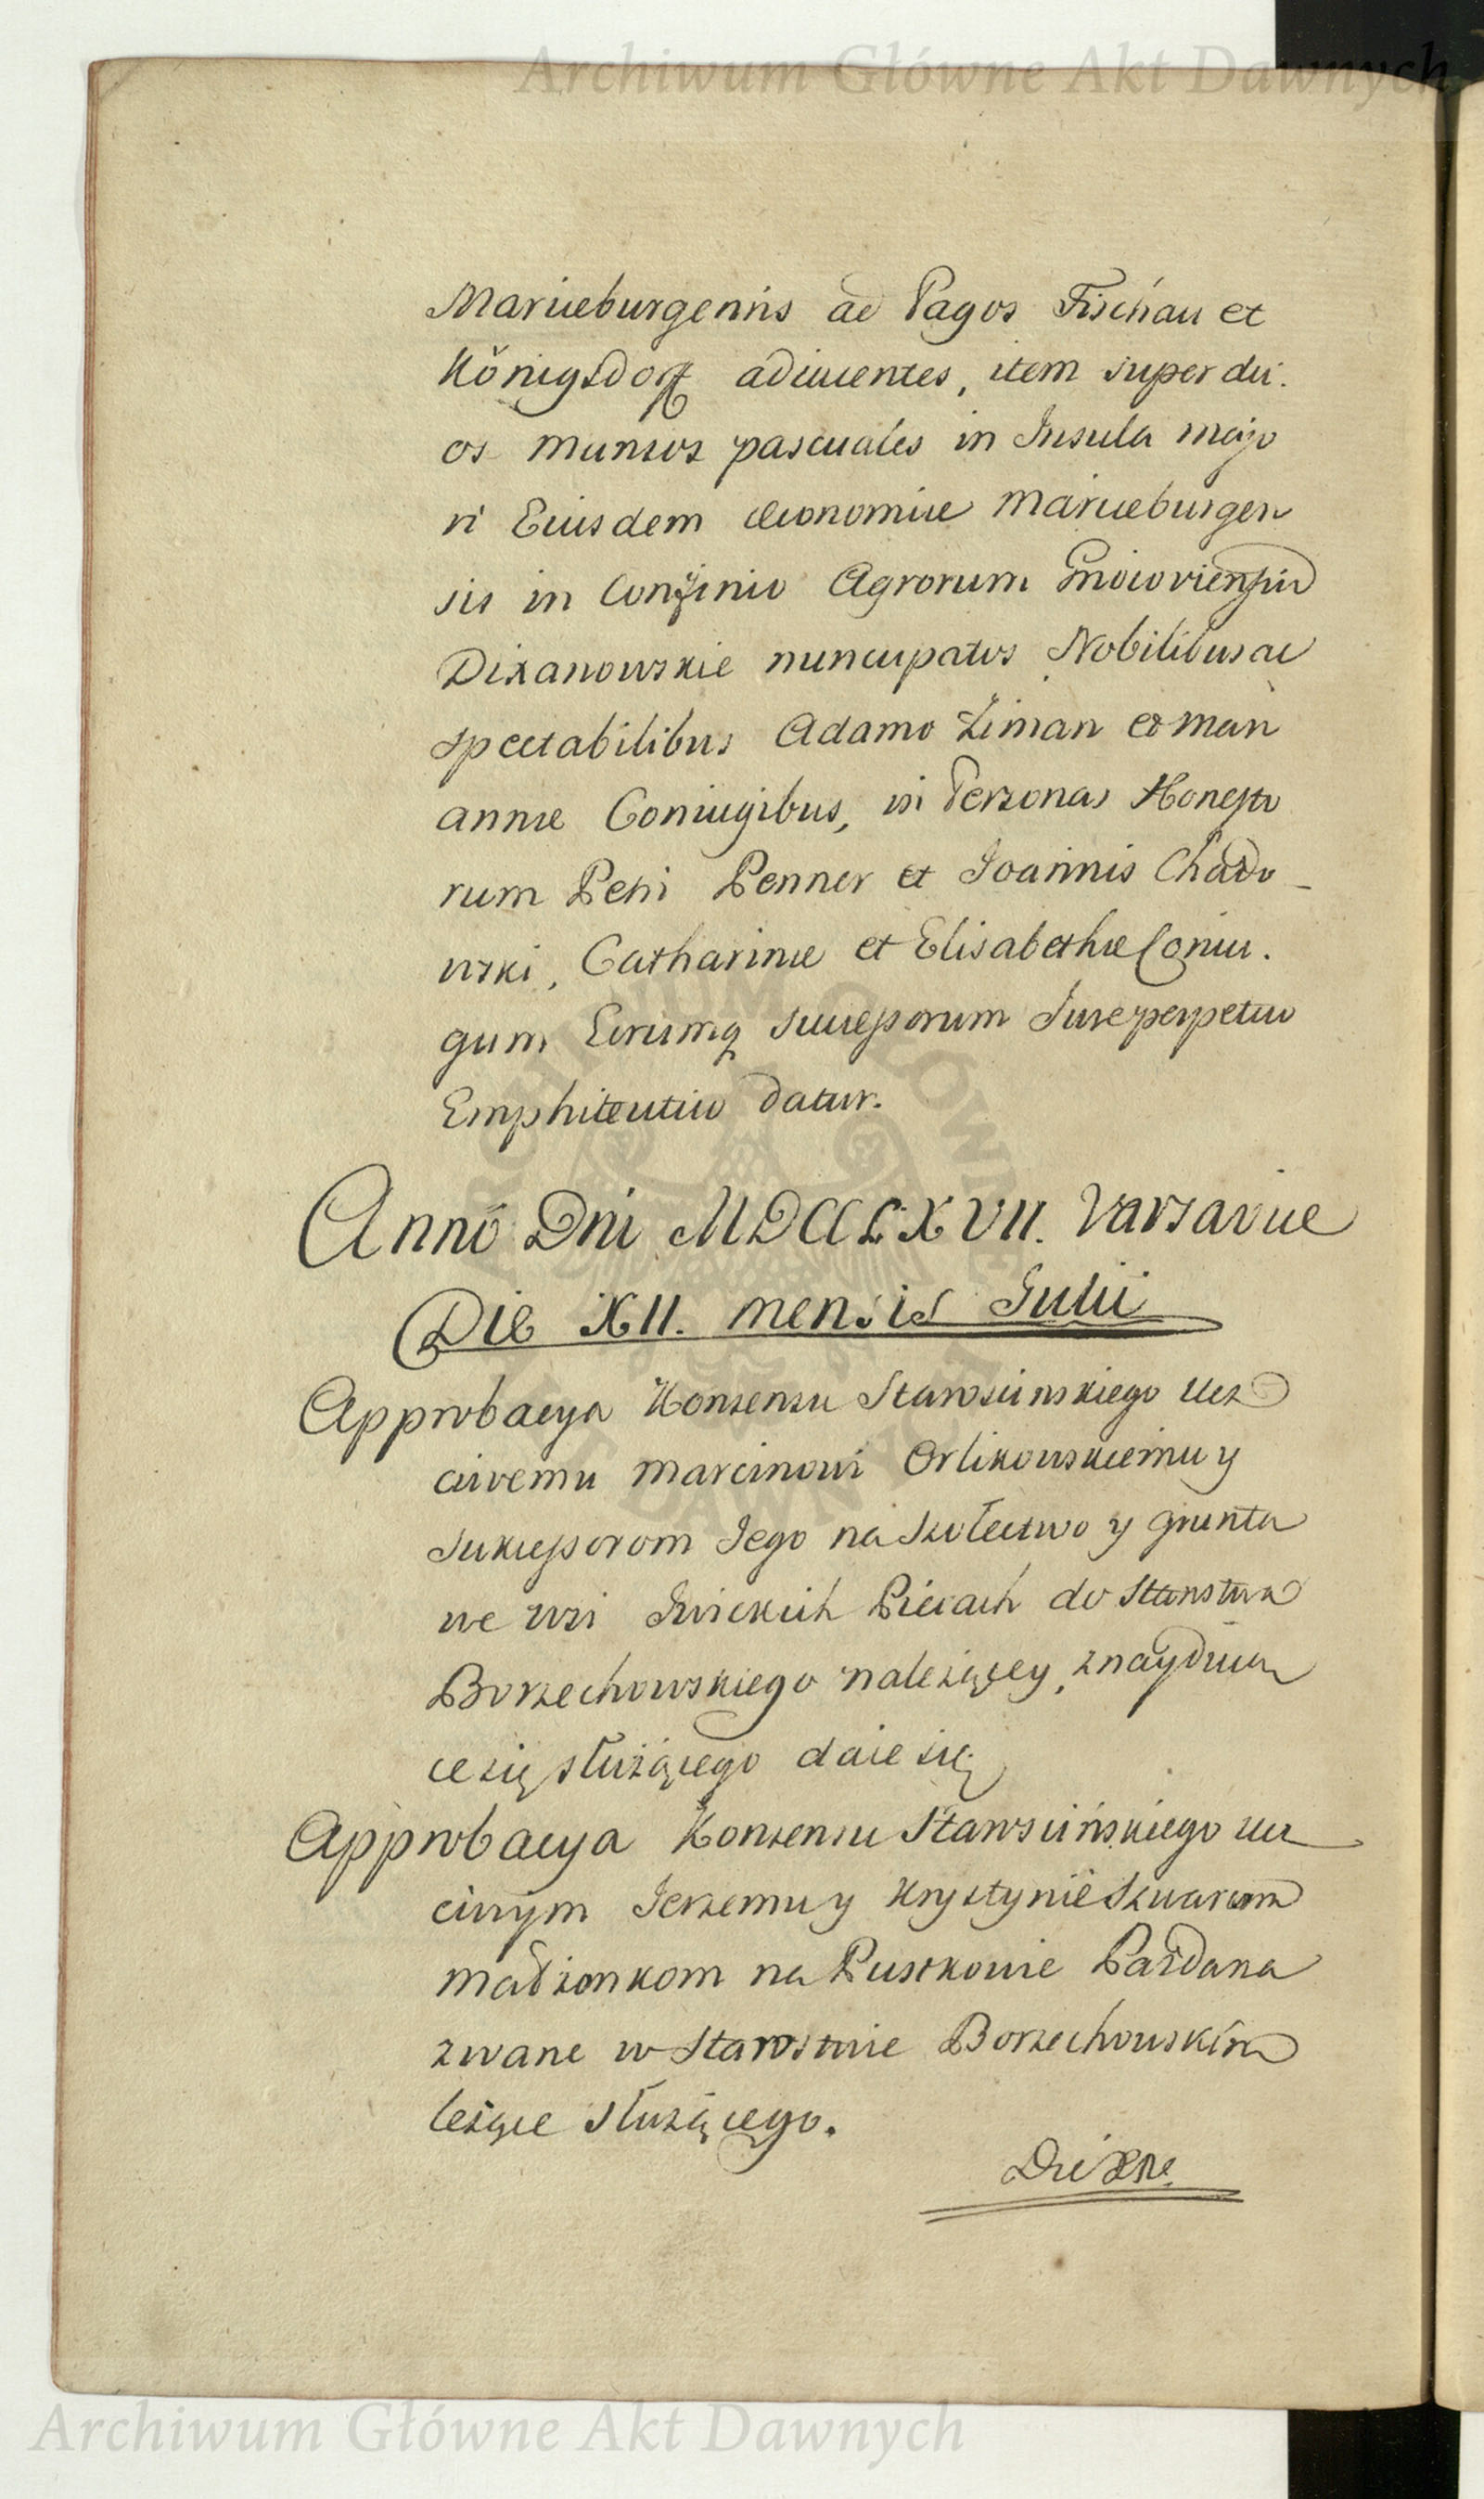 Archiwum Główne Akt Dawnych
Mariæburgensis ad Pagos Fischau et
Königsdorff adiacentes, item super du.
os mansos pascuales in Insula majo
ri Eiusdem Œconomiæ Mariæburgen
sis in Confinio Agrorum Gnoioviensiu
Dixanowskie nuncupatos Nobilibus ac
spectabilibus Adamo Ziman et Mari
annæ Coniugibus, in Personas Honesto
rum Petri Penner et Joannis Chado_
wski, Catharinæ et Elisabethæ Coniu.
gum Eorumq Successorum Jure perpetuo
Emphiteutico datur.
Anno Dni MDCCLXVII. Varsaviæ
Die XII. mensis Julii
Approbacya Konsensu Starościnskiego ucz
ciwemu Marcinowi Orlikowskiemu y
Sukcessorom Jego na Szołectwo y grunta
we wsi Piecach do Starostwa
Borzechowskiego należącey, znayduią
ce się służącego daie się
Approbacya Konsensu Starościńskiego ucz
ciwym Jerzemu y Krystynie Szwarcom
małżonkom na Pustkowie Pazdana
zwane w Starostwie Borzechowskim
leżące służącego.
Die
ARCHIWUM GŁÓWNE
AKT DAWNYCH
Archiwum Główne Akt Dawnych